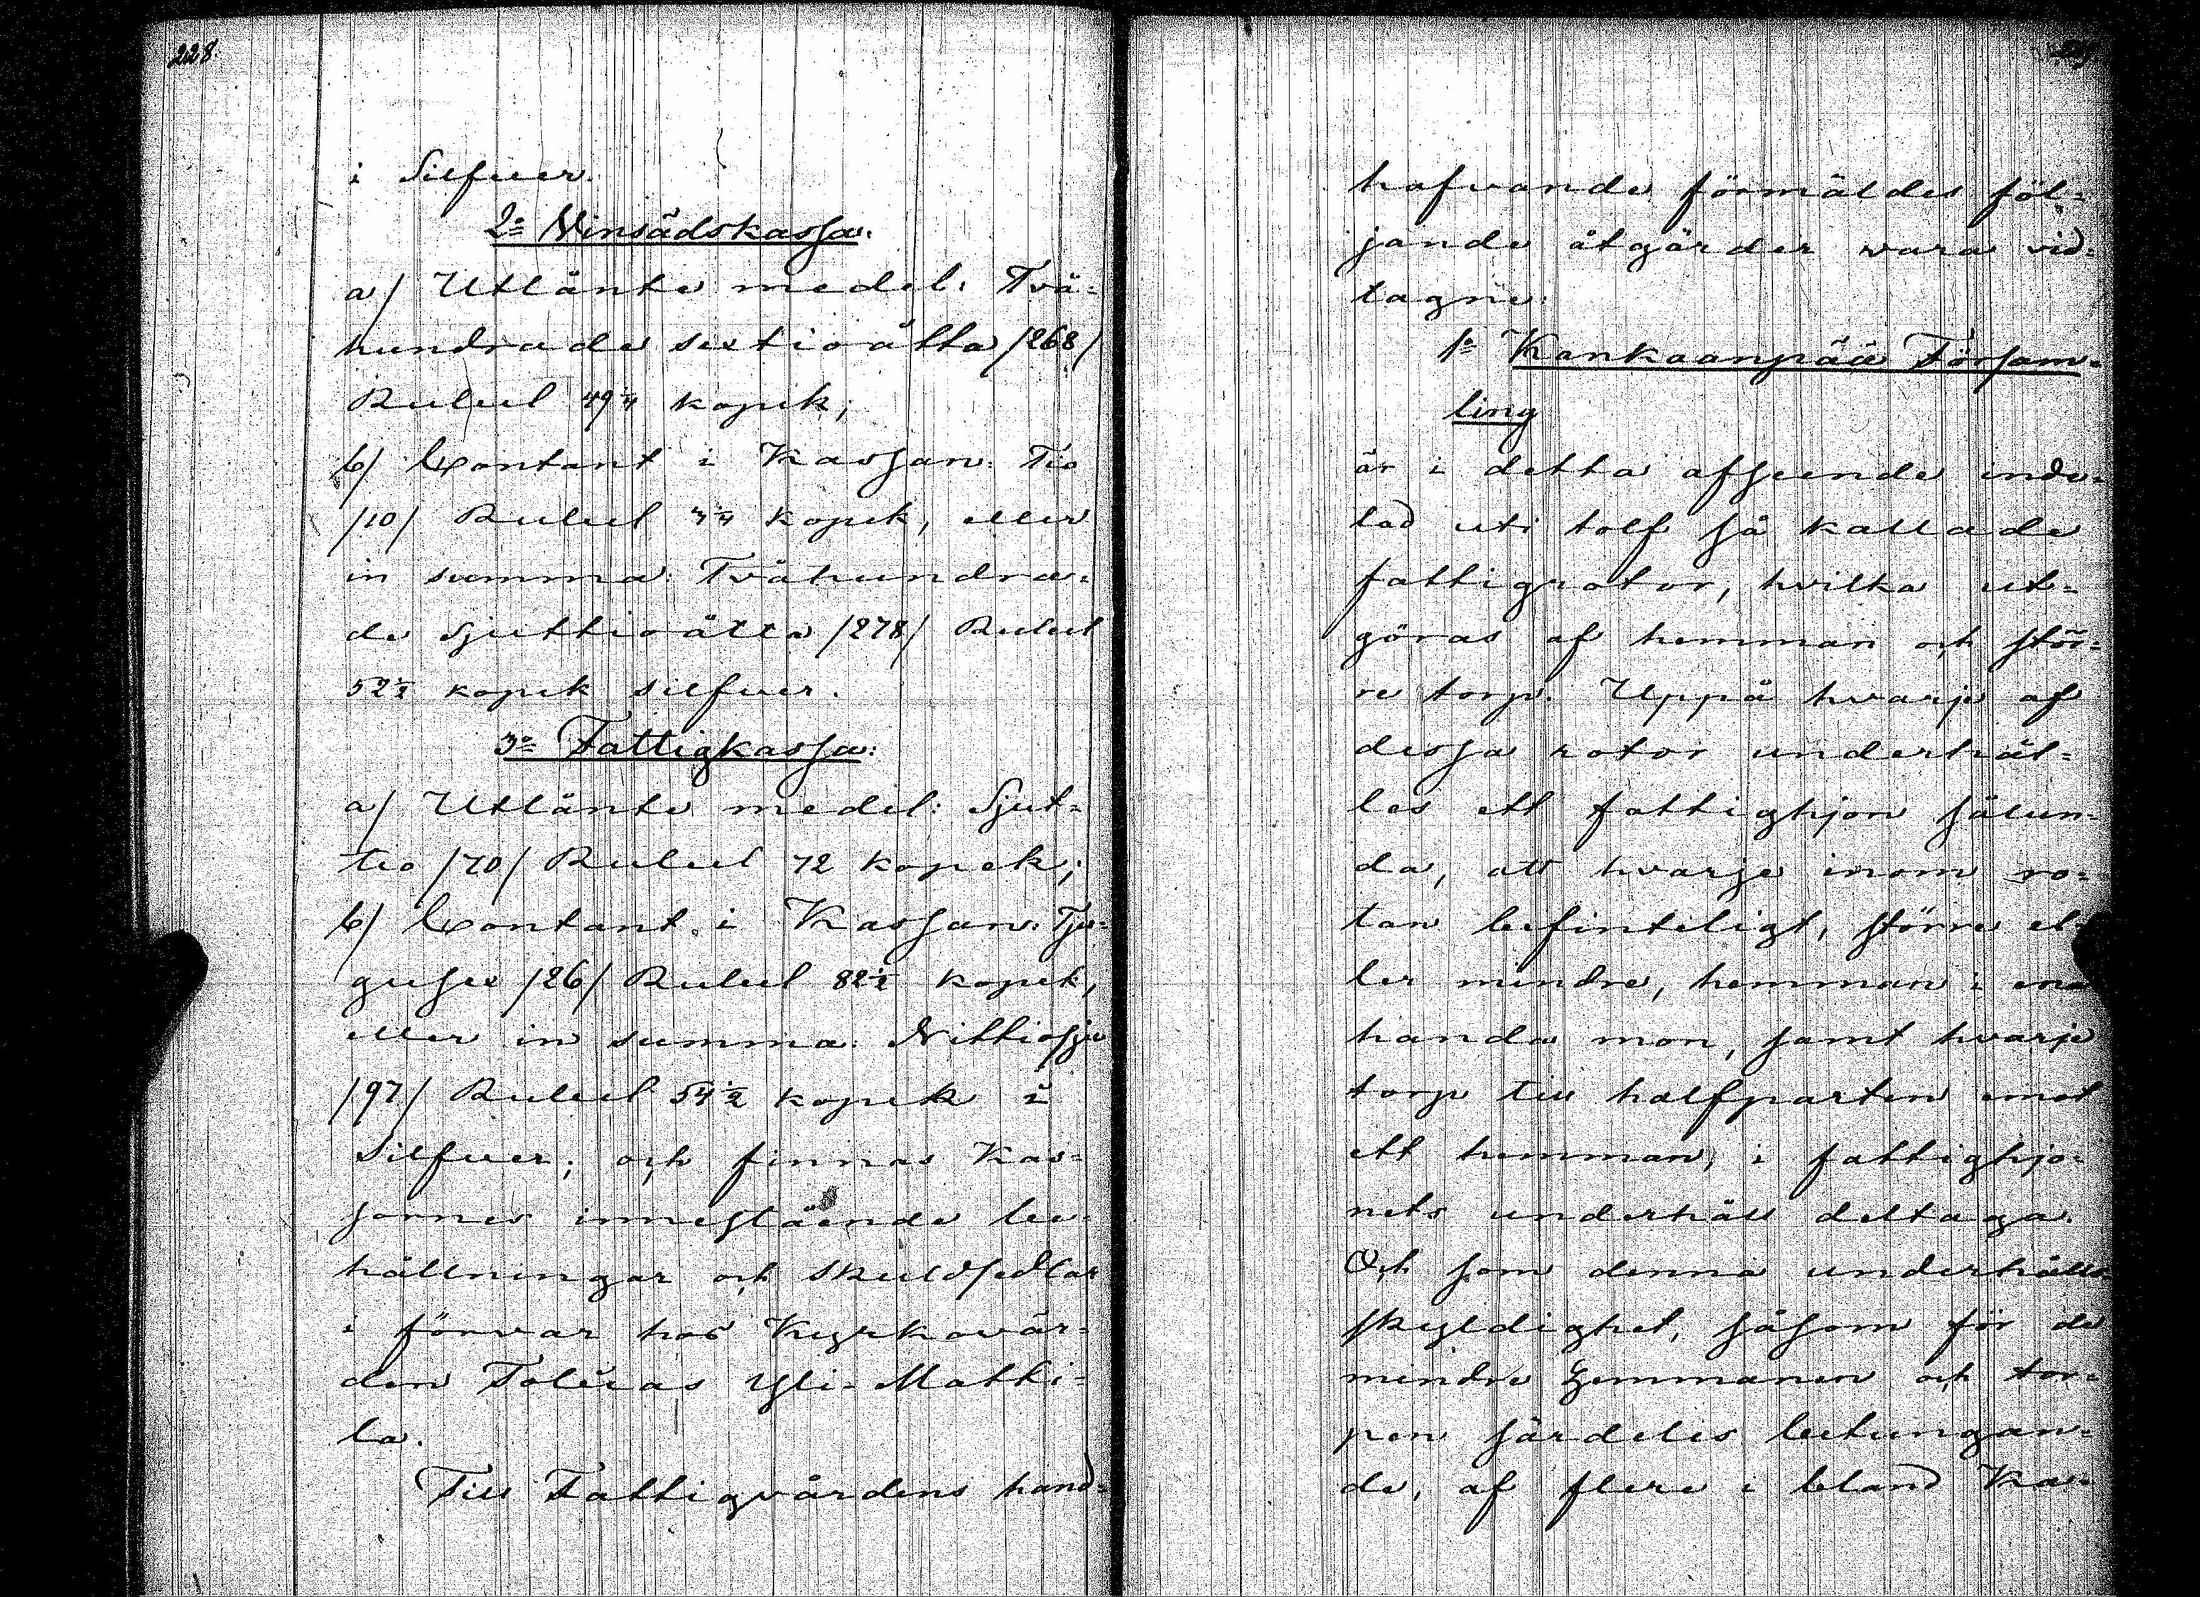 228.
i Silfver.
2o Vinsädskassa.
a/ Utlänte medel: Två-
hundrade sextioåtta /268/
Rubel 49¼ kopek;
b/ Contant i Kassan: Tio
/10/ Rubel 3¼ kopek, eller
in summa: Tvåhundra-
de sjuttioåtta /278/ Rubel
52½ kopek silfver.
3o Fattigkassa:
a/ Utlänte medel: Sjut-
tio /70/ Rubel 72 kopek;
b/ Contant i Kassan: Tju-
gusex /26/ Rubel 82½ kopek,
eller in summa: Nittiosju
/97/ Rubel 54½ kopek i
Silfver; och finnas Kas-
sornes innestående be-
hållningar och skuldsedlar
i förvar hos Kyrkovär-
den Tobias Yli-Matti-
la.
Till Fattigvårdens hand-
hafvande förmäldes föl-
jande åtgärder vara vid-
tagne:
1o Kankaanpää Försam-
ling
är i detta afseende inde-
lad uti tolf så kallade
fattigrotor, hvilka ut-
göras af hemman och stör-
re torp. Uppå hvarje af
dessa rotor underhål-
les ett fattighjon sålun-
da, att hvarje inom ro-
tan befinteligt, större el-
ler mindre, hemman i ena
handa mon, samt hvarje
torp till halfparten emot
ett hemman, i fattighjo-
nets underhåll deltaga.
Och som denna underhålls-
skyldighet, såsom för de
mindre hemmanen och tor-
pen särdeles betungan-
de, af flere i bland Ka-